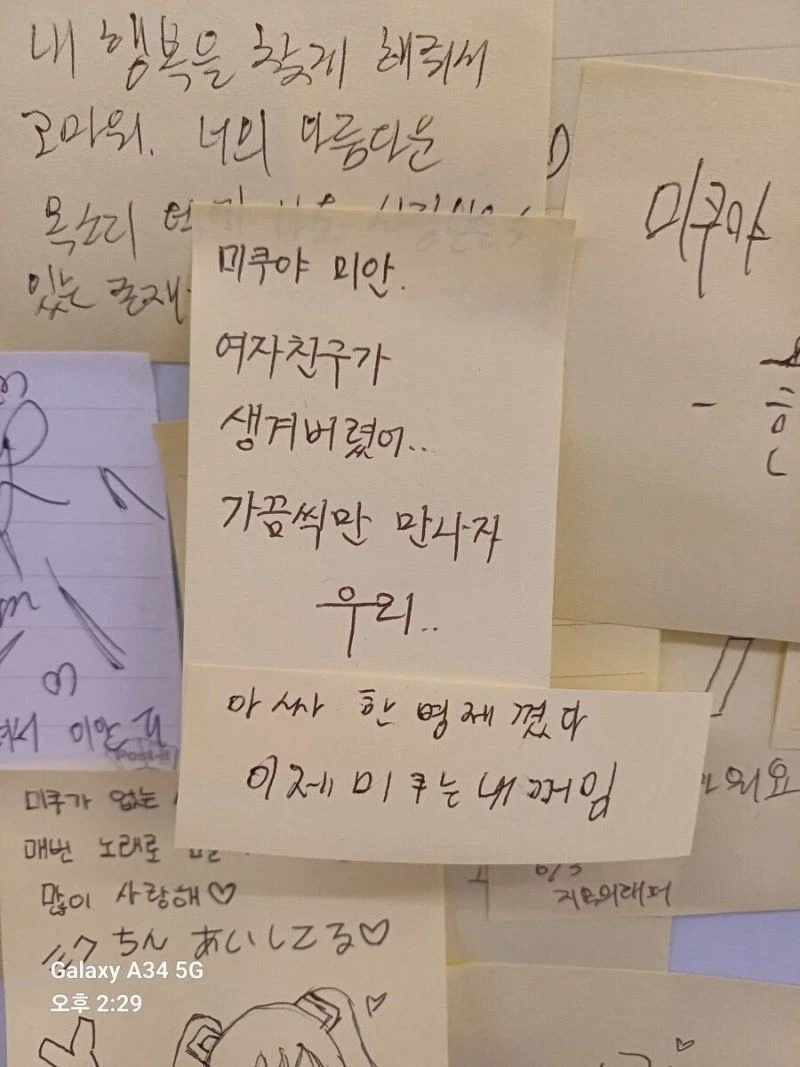 내 행복을 찾게 해줘서
고마워. 너의 아름다운
목소리
있는 존재
미쿠야
미쿠야 미안.
여자친구가
생겨버렸어..
가끔씩만 만나자
우리..
아싸 한 명 제꼈다
이제 미쿠는 내꺼임
미쿠가 없는
매번 노래로
많이 사랑해♡
ミクちん あいしてる♡
지오의래퍼
Galaxy A34 5G
오후 2:29